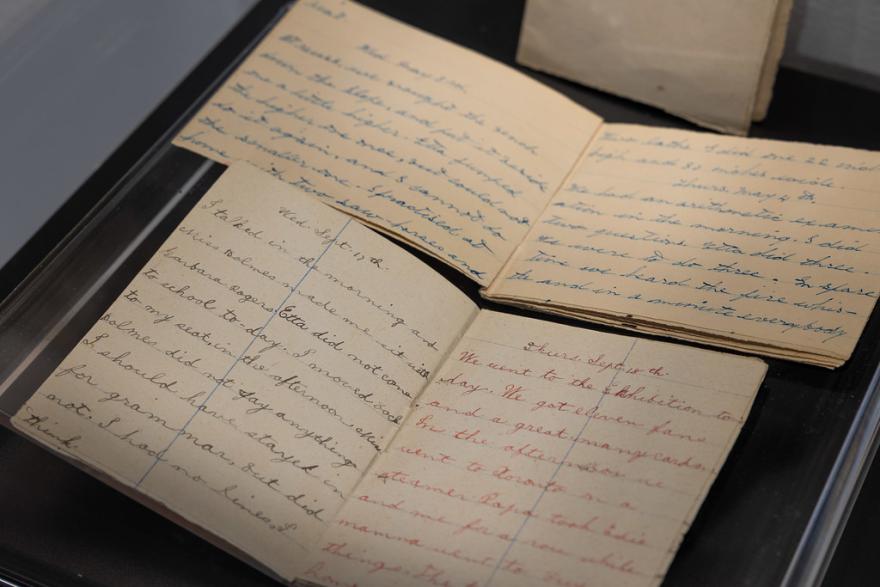 Wed. May 3 rd.
At recess, we brought the
down the slope, and put
me a little higher. Etta jumped
the highest one once, and could not
do it again, and I cannot do
some smaller one. I practised at
saw horses and
two baths. I did one 22
high and 30 inches wide.
Thurs. May 4 th.
We had an arithmetic exami
ation in the morning. I did
two questions. Etta did three.
We were to do three. In spare
time we heard the fire whis-
tle and in a minute everybody
Wed. Sept. 17 th.
I talked in the morning and
Miss Holmes made me sit with
Barbara Rogers. Etta did not come
to school to day. I moved back
to my seat in the afternoon. Miss
Holmes did not say anything.
I should have stayed in
for grammar, but did
not. I had no lines, I
think.
Thurs. Sept. 18 th.
We went to the Exhibition to-
day. We got eleven fans
and a great many cards.
In the afternoon we
went to Toronto on a
steamer. Papa took Sadie
and me for a row while
mamma went to
things. They